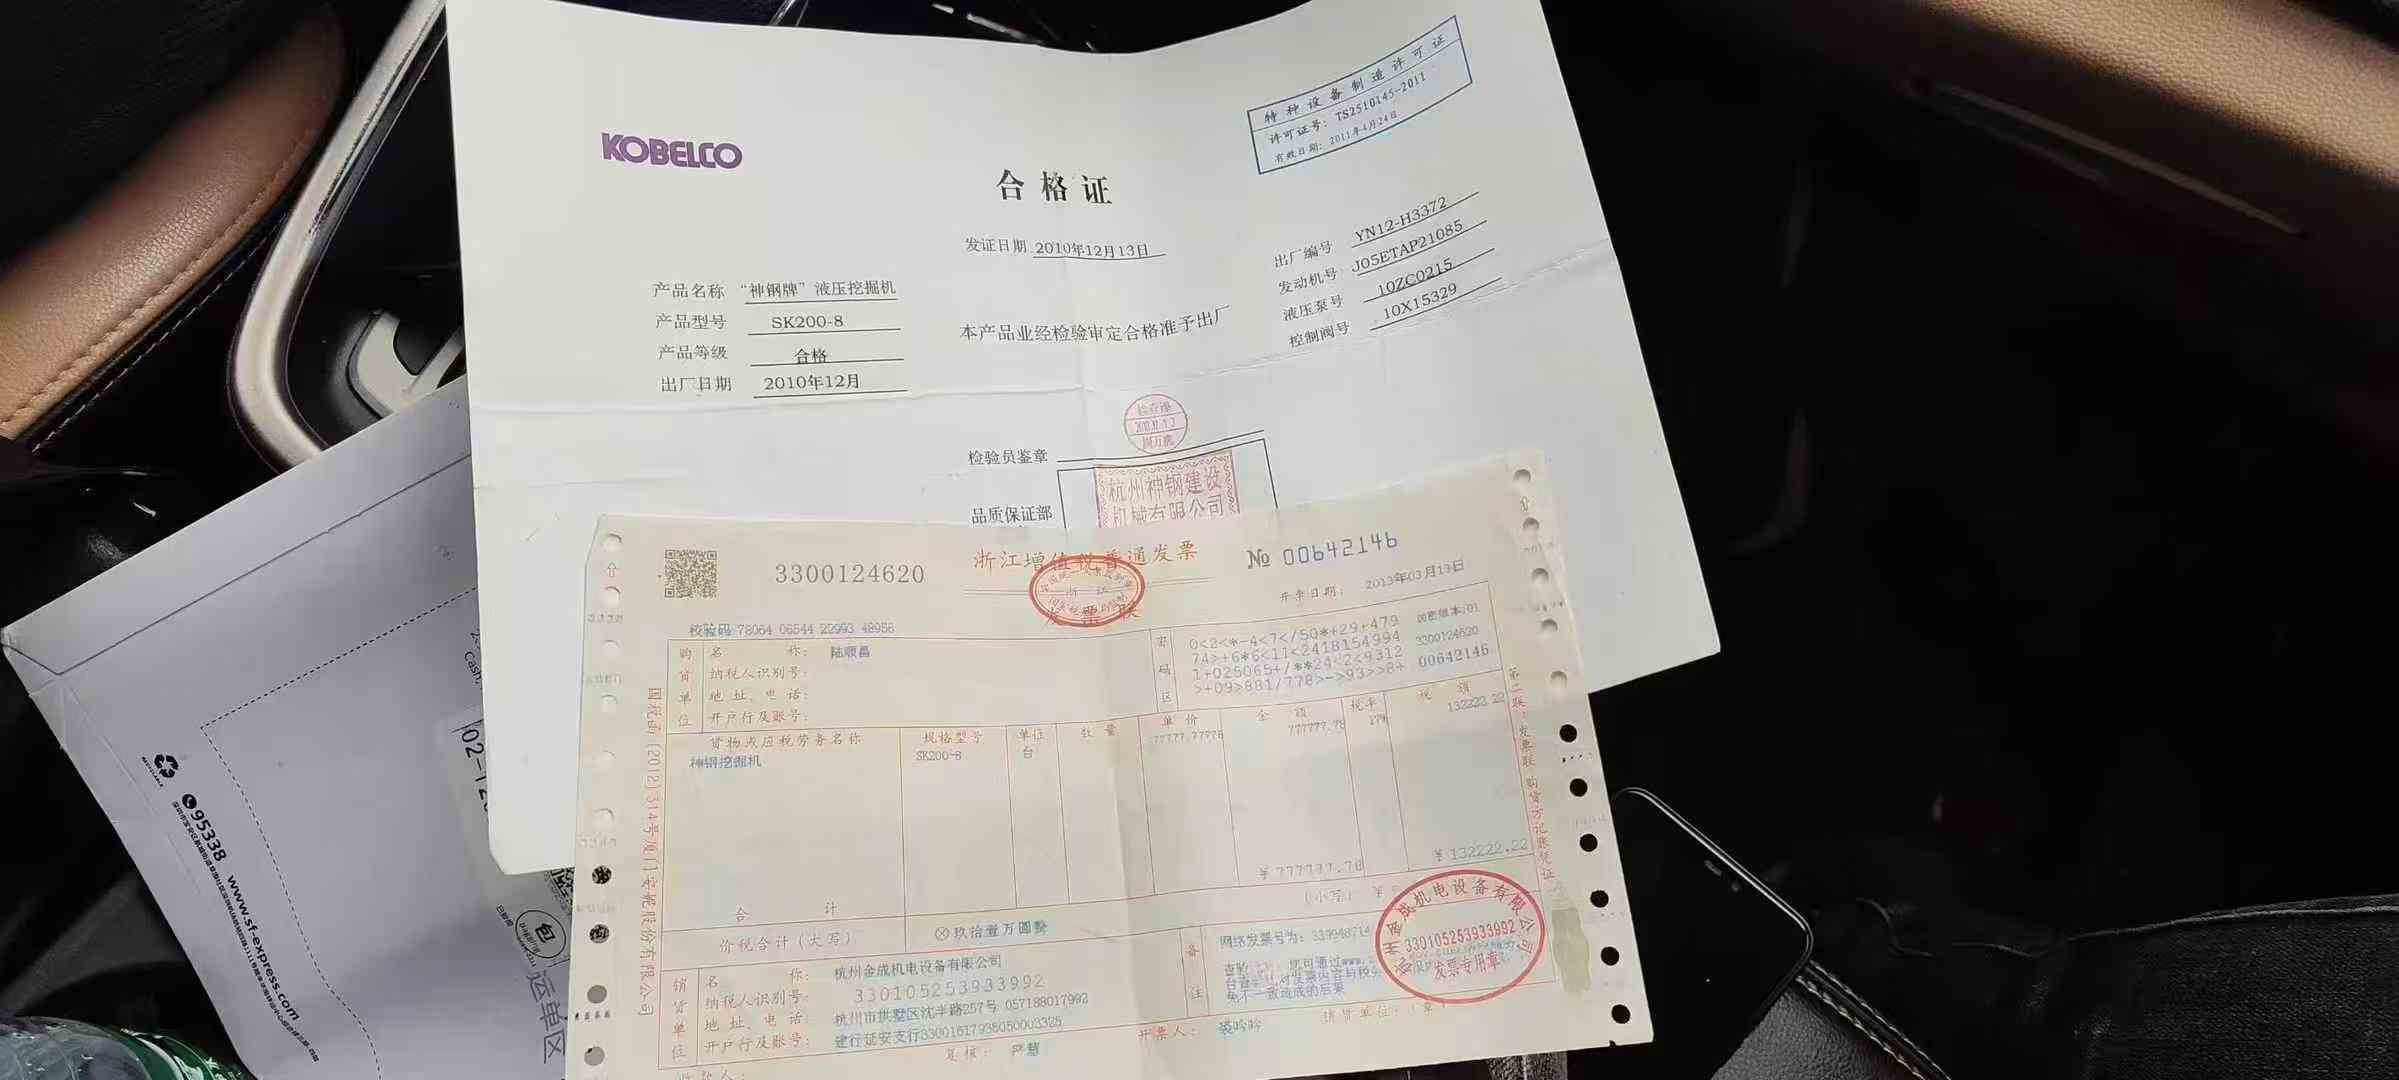 KOBELCO
合格证
特种设备制造许可证
许可证号：TS2510145-2011
有效日期：2011年4月24日
发证日期 2010年12月13日
产品名称 “神钢牌”液压挖掘机
产品型号 SK200-8
产品等级 合格
出厂日期 2010年12月
本产品业经检验审定合格准予出厂
出厂编号 YN12-H3372
发动机号 J05ETAP21085
液压泵号 10ZC0215
控制阀号 10X15329
检验员鉴章
品质保证部
杭州神钢建设
机械有限公司
3300124620
浙江增值税普通发票
发票联
№ 00642146
开票日期： 2013年03月13日
校验码 78064 06544 22993 48956
购货单位
名称： 陆顺昌
纳税人识别号：
地址、电话：
开户行及账号：
密码区
0<2<*-4<7</50*+29+479
74>+6*6<11<2418154994
1+025065+/**24<2<9312
>+09>881/778>->93>>8+
加密版本:01
3300124620
00642146
货物或应税劳务名称 规格型号 单位 数量 单价 金额 税率 税额
神钢挖掘机 SK200-8 台 777777.78 17% 132222.22
合计 ¥777777.78 ¥132222.22
价税合计（大写） ⊗玖拾壹万圆整 （小写）
销货单位
名称： 杭州金成机电设备有限公司
纳税人识别号： 330105253933992
地址、电话： 杭州市拱墅区沈半路257号 057188017992
开户行及账号： 建行延安支行33001617935050003325
备注
网络发票号为：
收款人：
复核： 严慧
开票人： 裘吟吟
销货单位：（章）
330105253933992
发票专用章
第二联：发票联 购货方记账凭证
95338
www.sf-express.com
包
运单区